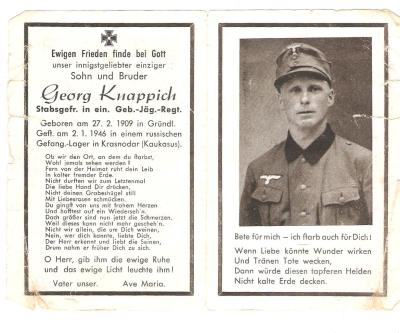 Ewigen Frieden finde bei Gott
unser innigstgeliebter einziger
Sohn und Bruder
Georg Knappich
Stabsgefr. in ein. Geb.-Jäg.-Regt.
Geboren am 27. 2. 1909 in Gründl.
Gest. am 2. 1. 1946 in einem russischen
Gefang.-Lager in Krasnodar (Kaukasus).
Ob wir den Ort, an dem du starbst,
Wohl jemals sehen werden?
Fern von der Heimat ruht dein Leib
In kalter fremder Erde.
Nicht durften wir zum Letztenmal
Die liebe Hand Dir drücken,
Nicht deinen Grabeshügel still
Mit Liebesrosen schmücken.
Du gingst von uns mit frohem Herzen
Und hofftest auf ein Wiederseh'n.
Doch größer sind nun jetzt die Schmerzen.
Weil dieses kann nicht mehr gescheh'n.
Nicht wir allein, die um Dich weinen,
Nein, wer dich kannte, liebte Dich,
Der Herr erkennt und liebt die Seinen,
Drum nahm er früher Dich zu sich.
O Herr, gib ihm die ewige Ruhe
und das ewige Licht leuchte ihm!
Vater unser. Ave Maria.
Bete für mich – ich starb auch für Dich!
Wenn Liebe könnte Wunder wirken
Und Tränen Tote wecken,
Dann würde diesen tapferen Helden
Nicht kalte Erde decken.